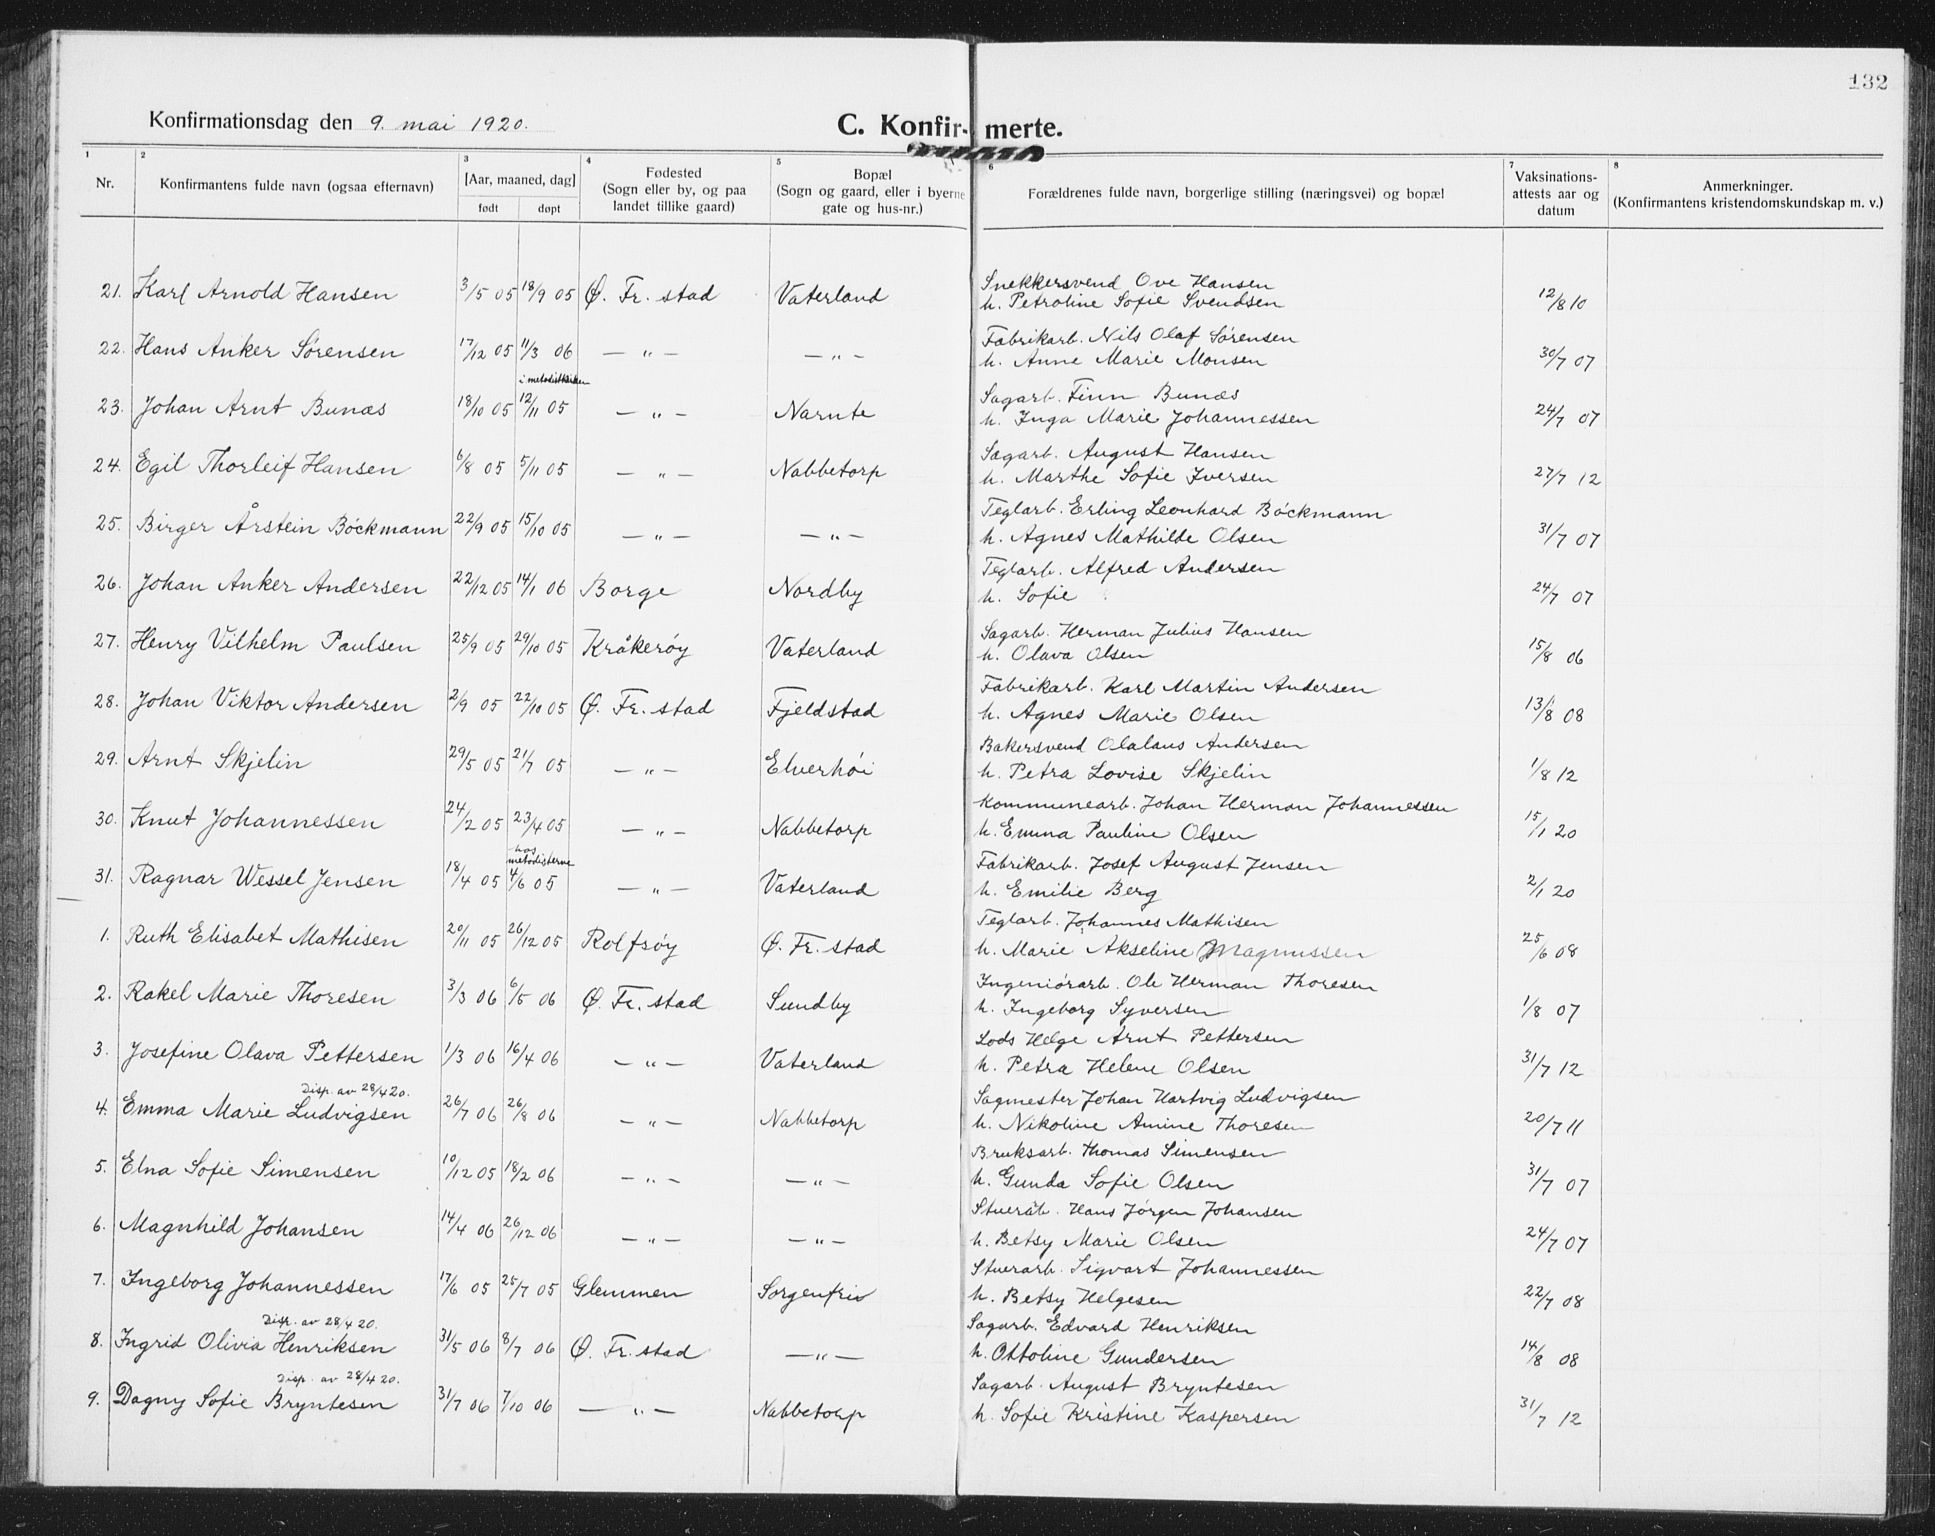 132
Konfirmationsdag den 9. mai 1920.
C. Konfir- merte.
1 2 3 4 5 6 7 8
Nr. Konfirmantens fulde navn (ogsaa efternavn) [Aar, maaned, dag] født døpt Fødested (Sogn eller by, og paa landet tillike gaard) Bopæl (Sogn og gaard, eller i byerne gate og hus-nr.) Forældrenes fulde navn, borgerlige stilling (næringsvei) og bopæl Vaksinations-attests aar og datum Anmerkninger. (Konfirmantens kristendomskundskap m. v.)
Snekkersvend Ove Hansen
21. Karl Arnold Hansen 3/5 05 18/9 05 Ø. Fr. stad Vaterland h. Petroline Sofie Svendsen 12/8 10
Fabrikarb. Nils Olaf Sørensen
22. Hans Anker Sørensen 17/12 05 11/3 06 — " — — " — h. Anne Marie Monsen 30/7 07
i metodistkirken
Sagarb. Finn Bunæs
23. Johan Arnt Bunæs 18/10 05 12/11 05 — " — Narnte h. Inga Marie Johannessen 24/7 07
Sagarb. August Hansen
24. Egil Thorleif Hansen 6/8 05 5/11 05 — " — Nabbetorp h. Marthe Sofie Iversen 27/7 12
Teglarb. Erling Leonhard Böckmann
25. Birger Årstein Böckmann 22/9 05 15/10 05 — " — — " — h. Agnes Mathilde Olsen 31/7 07
Teglarb. Alfred Andersen
26. Johan Anker Andersen 22/12 05 14/1 06 Borge Nordby h. Sofie 24/7 07
Sagarb. Herman Julius Hansen
27. Henry Vilhelm Paulsen 25/9 05 29/10 05 Kråkerøy Vaterland h. Olava Olsen 15/8 06
Fabrikarb. Karl Martin Andersen
28. Johan Viktor Andersen 2/9 05 22/10 05 Ø. Fr. stad Fjeldstad h. Agnes Marie Olsen 13/8 08
Bakersvend Olalaus Andersen
29. Arnt Skjelin 29/5 05 21/7 05 — " — Elverhöi h. Petra Lovise Skjelin 1/8 12
Kommunearb. Johan Herman Johannessen
30. Knut Johannessen 24/2 05 23/4 05 — " — Nabbetorp h. Emma Pauline Olsen 15/1 20
hos metodisterne
Fabrikarb. Josef August Jensen
31. Ragnar Wessel Jensen 18/4 05 4/6 05 — " — Vaterland h. Emilie Berg 2/1 20
Teglarb. Johannes Mathisen
1. Ruth Elisabet Mathisen 20/11 05 26/12 05 Rolfsøy Ø. Fr. stad h. Marie Akseline Magnussen 25/6 08
Ingeniörarb. Ole Herman Thoresen
2. Rakel Marie Thoresen 3/3 06 6/5 06 Ø. Fr. stad Sundby h. Ingeborg Syversen 1/8 07
Lods Helge Arnt Pettersen
3. Josefine Olava Pettersen 1/3 06 16/4 06 — " — Vaterland h. Petra Helene Olsen 31/7 12
Disp. av 28/4 20.
Sagmester Johan Hartvig Ludvigsen
4. Emma Marie Ludvigsen 26/7 06 26/8 06 — " — Nabbetorp h. Nikoline Amine Thoresen 20/7 11
Bruksarb. Thomas Simensen
5. Elna Sofie Simensen 10/12 05 18/2 06 — " — — " — h. Gunda Sofie Olsen 31/7 07
Stuerab. Hans Jørgen Johansen
6. Magnhild Johansen 14/4 06 26/12 06 — " — — " — h. Betsy Marie Olsen 24/7 07
Stuerarb. Sigvart Johannessen
7. Ingeborg Johannessen 17/6 05 25/7 05 Glemmen Sorgenfri h. Betsy Helgesen 22/7 08
Disp. av 28/4 20.
Sagarb. Edvard Henriksen
8. Ingrid Olivia Henriksen 31/5 06 8/7 06 Ø. Fr. stad — " — h. Ottoline Gundersen 14/8 08
Disp. av 28/4 20.
Sagarb. August Bryntesen
9. Dagny Sofie Bryntesen 31/7 06 7/10 06 — " — Nabbetorp h. Sofie Kristine Kaspersen 31/7 12